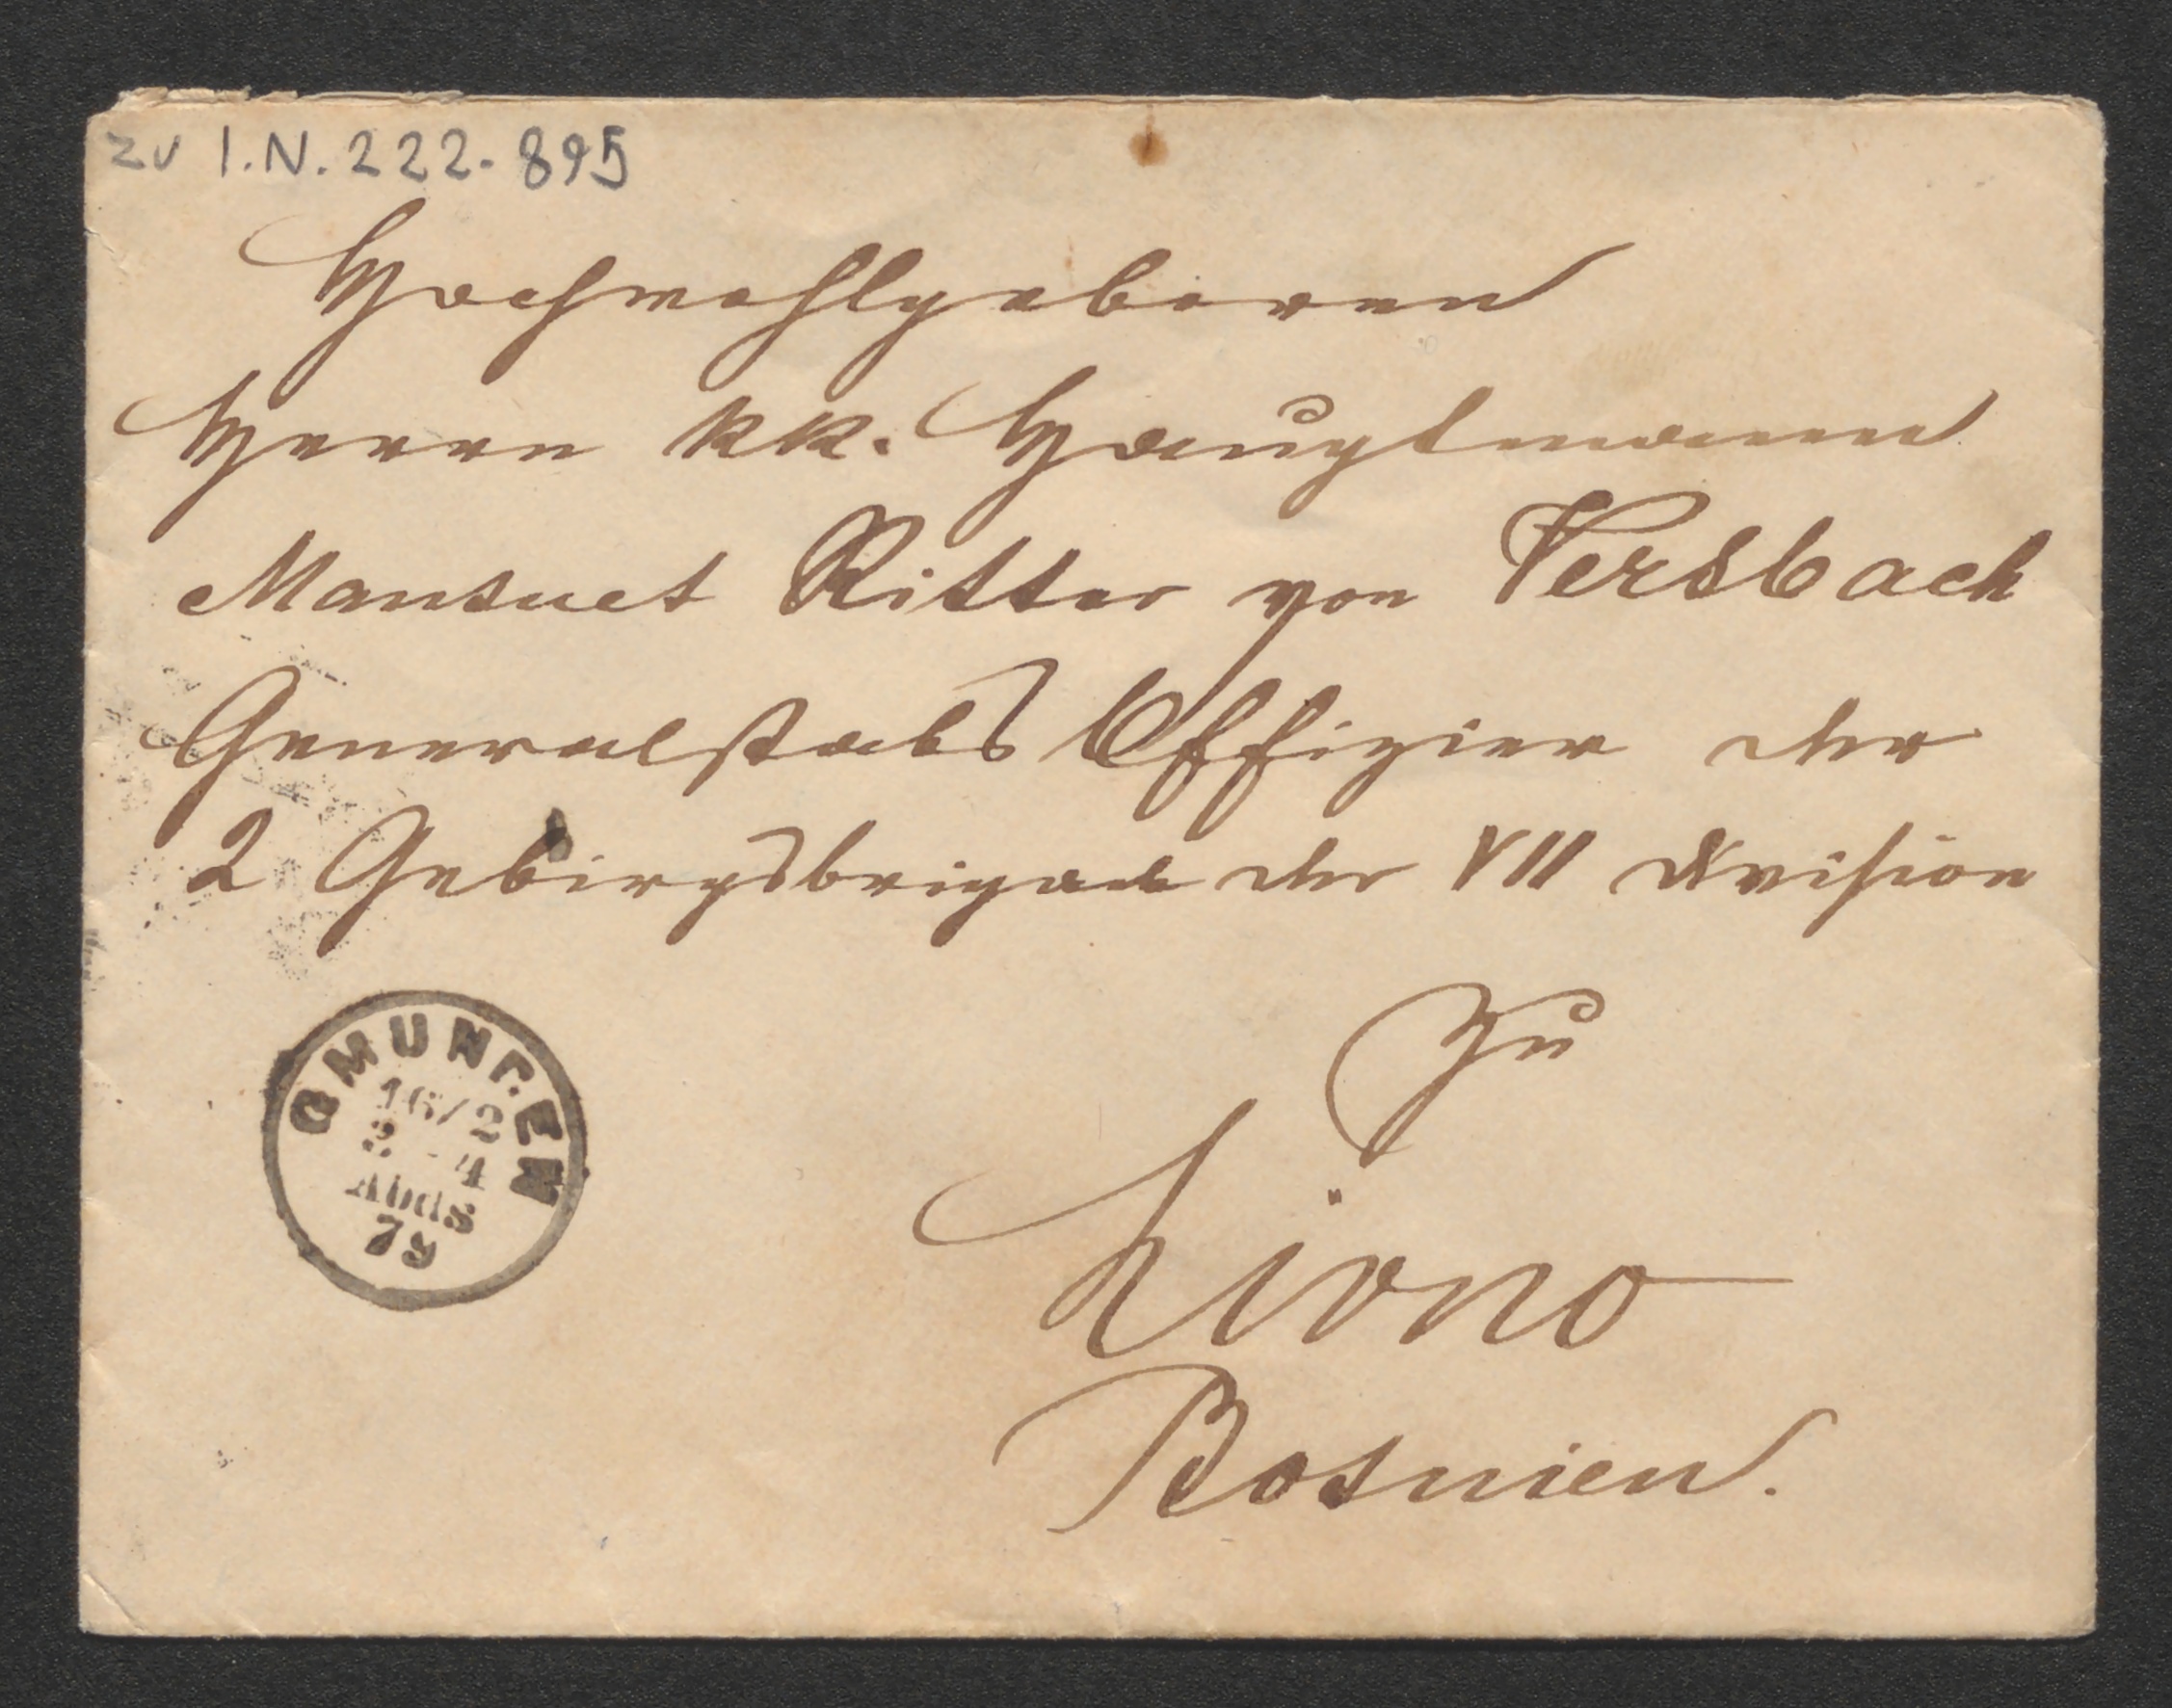 zu I.N. 222.895
Hochwohlgeboren
Herrn kk. Hauptmann
Mansuet Ritter von Versbach
Generalstabs Offizier der
2 Gebirgsbrigade der VII Division
Zu
Livno
Bosnien.
GMUNDEN
16/2
2-4
Abds
79